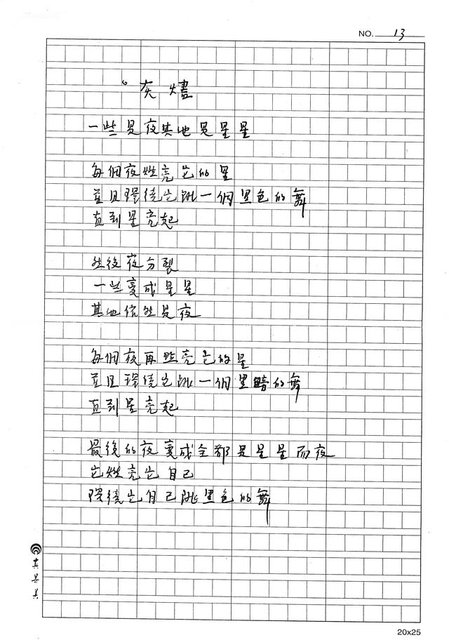 NO. 13
灰燼
一些是夜其他是星星
每個夜燃亮它的星
並且環繞它跳一個黑色的舞
直到星亮起
然後夜分裂
一些變成星星
其他依然是夜
每個夜再燃亮它的星
並且環繞它跳一個黑暗的舞
直到星亮起
最後的夜變成全部是星星而夜
它燃亮它自己
環繞它自己跳黑色的舞
20x25